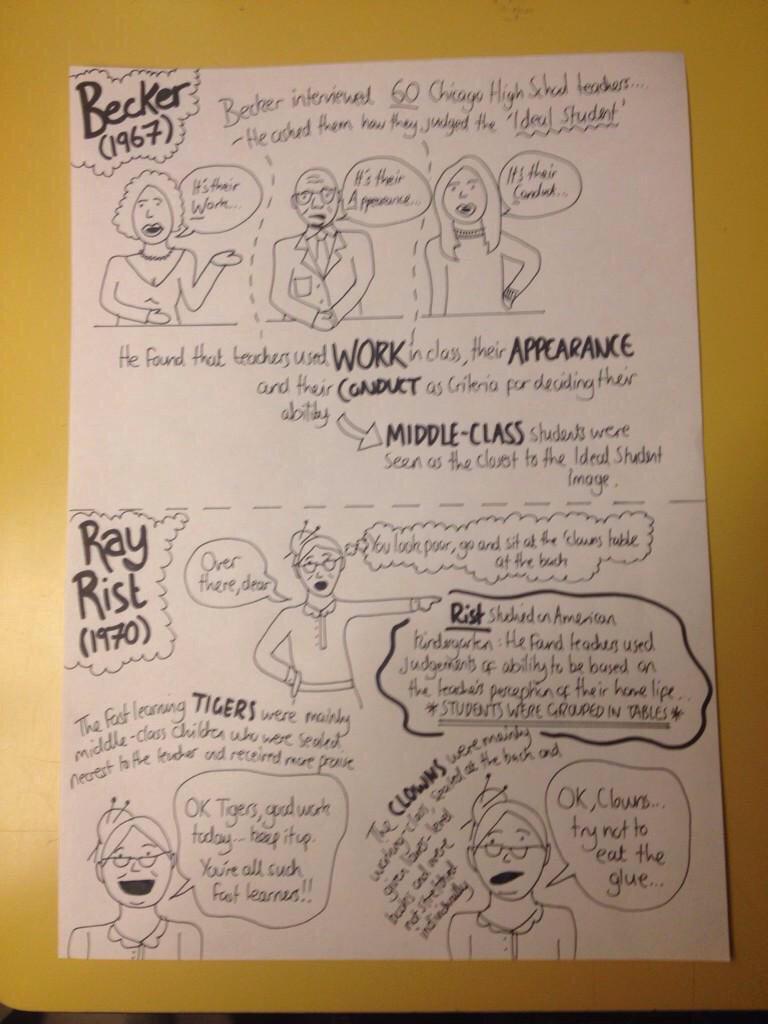 Becker
(1967)
Becker interviewed 60 Chicago High School teachers....
- He asked them how they judged the 'Ideal Student'
It's their
Work...
It's their
Appearance...
It's their
Conduct...
He found that teachers used WORK in class, their APPEARANCE
and their CONDUCT as Criteria for deciding their
ability
MIDDLE-CLASS students were
seen as the closest to the Ideal Student
Image.
Ray
Rist
(1970)
Over
there, dear
You look poor, go and sit at the 'clowns' table
at the back
Rist studied an American
Kindergarten: He found teachers used
Judgements of ability to be based on
the teacher's perception of their home life..
*STUDENTS WERE GROUPED IN TABLES*
The fast learning TIGERS were mainly
middle-class children who were seated
nearest to the teacher and received more praise
The CLOWNS were mainly
working-class, seated at the back and
given lower-level
books and were
not
individually
OK Tigers, good work
today... keep it up.
You're all such
fast learners!!
OK, Clowns...
try not to
eat the
glue...